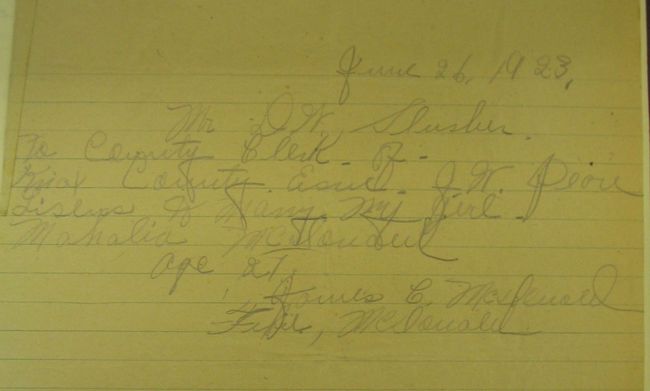 June 26, 1923,
Mr D. W. Slusher.
To County Clerk. of -
Knox County. J. W.
Lisens to Marry My Girl.
Mahalia McDonald
age 27,
James C. McDonald
McDonald